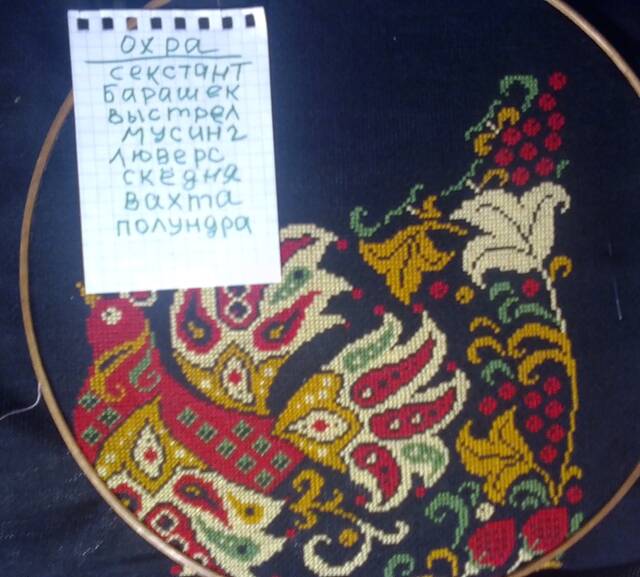 охра
секстант
барашек
выстрел
мусинг
люверс
скедня
вахта
полундра